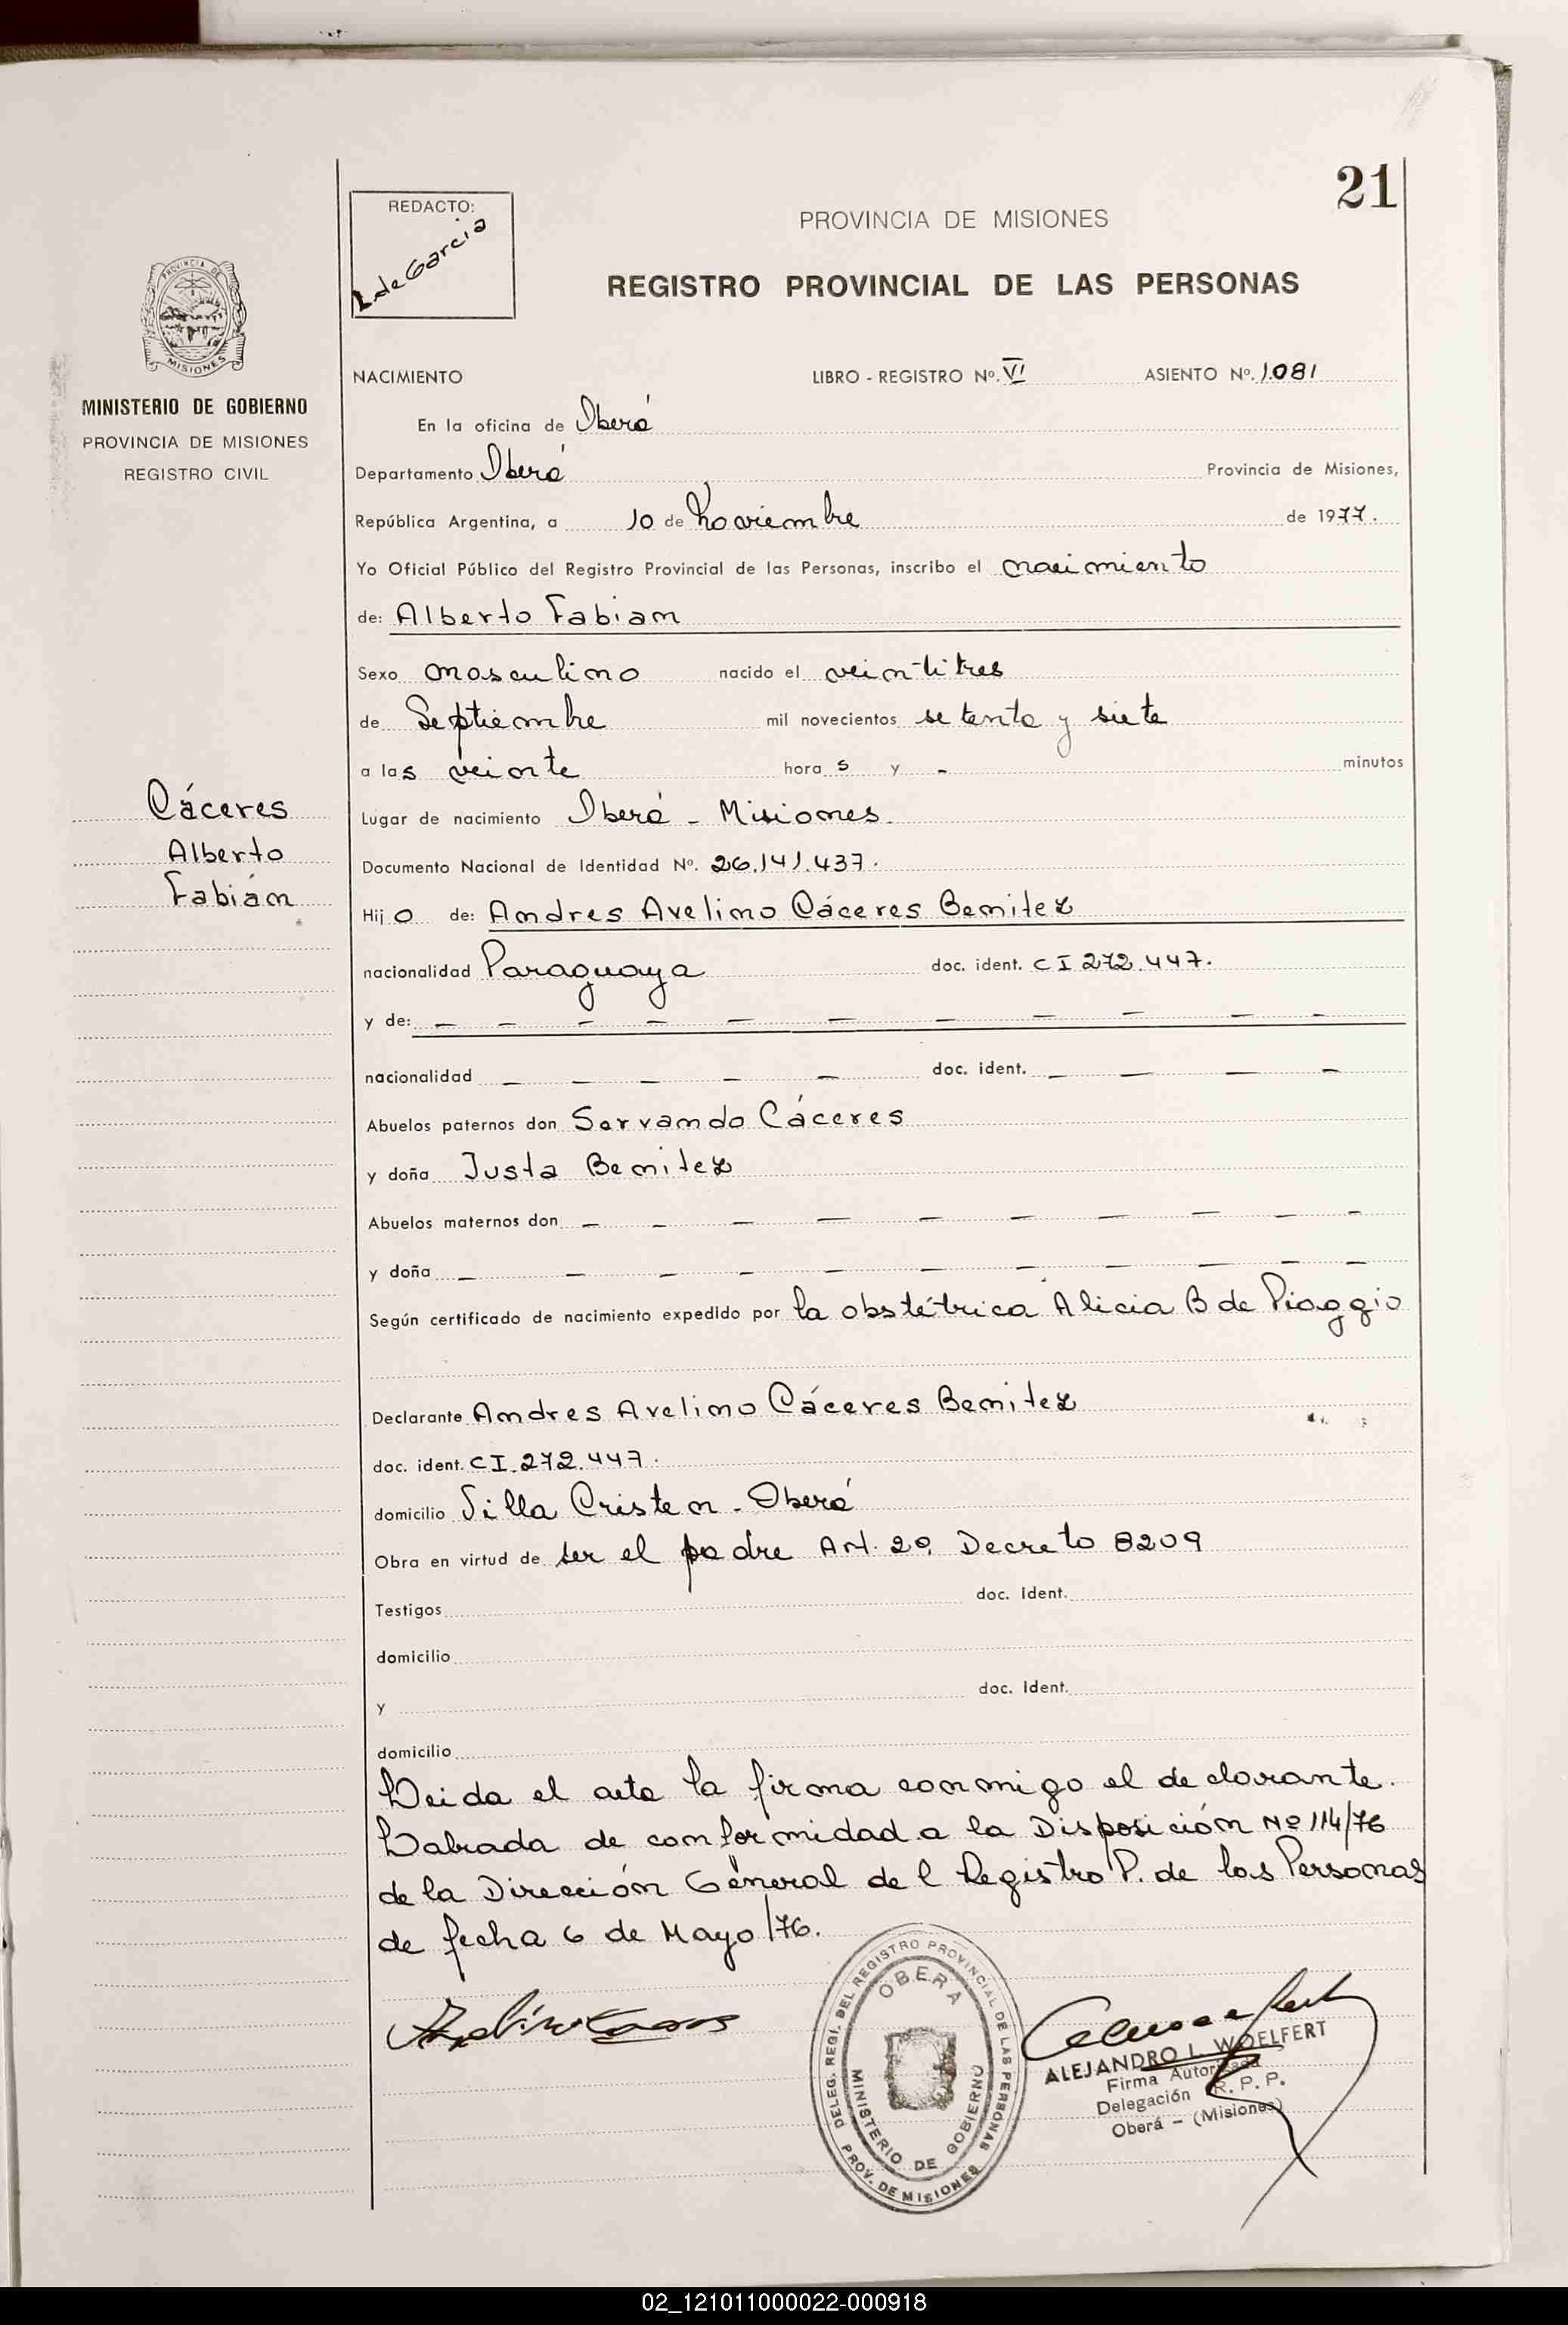 21
REDACTO:
L de Garcia
PROVINCIA DE MISIONES
REGISTRO PROVINCIAL DE LAS PERSONAS
PROVINCIA DE
MISIONES
MINISTERIO DE GOBIERNO
PROVINCIA DE MISIONES
REGISTRO CIVIL
NACIMIENTO LIBRO - REGISTRO Nº. VI ASIENTO Nº. 1081
En la oficina de Oberá
Departamento Oberá Provincia de Misiones,
República Argentina, a 10 de Noviembre de 1977.
Yo Oficial Público del Registro Provincial de las Personas, inscribo el nacimiento
de: Alberto Fabian
Sexo masculino nacido el veintitres
de Septiembre mil novecientos setenta y siete
a las veinte horas y - minutos
Cáceres
Alberto
Fabián
Lugar de nacimiento Oberá - Misiones.
Documento Nacional de Identidad Nº. 26.141.437.
Hijo de: Andres Avelino Cáceres Benitez
nacionalidad Paraguaya doc. ident. CI 272.447.
y de: — — — — — — — — — — —
nacionalidad — — — — — doc. ident. — — — —
Abuelos paternos don Servando Cáceres
y doña Justa Benitez
Abuelos maternos don — — — — — — — — — —
y doña — — — — — — — — — —
Según certificado de nacimiento expedido por la obstétrica Alicia B de Piaggio
Declarante Andres Avelino Cáceres Benitez
doc. ident. CI. 272.447.
domicilio Villa Cristen - Oberá
Obra en virtud de ser el padre Art. 2º. Decreto 8209
Testigos doc. Ident.
domicilio
y doc. Ident.
domicilio
Leida el acta la firma conmigo el declarante.
Labrada de conformidad a la Disposición Nº 114/76
de la Dirección General del Registro P. de las Personas
de fecha 6 de Mayo/76.
DELEG. REGI. DEL REGISTRO PROVINCIAL DE LAS PERSONAS
OBERA
MINISTERIO DE GOBIERNO
PROV. DE MISIONES
ALEJANDRO L. WOELFERT
Firma Autorizada
Delegación R. P. P.
Oberá - (Misiones)
02_121011000022-000918